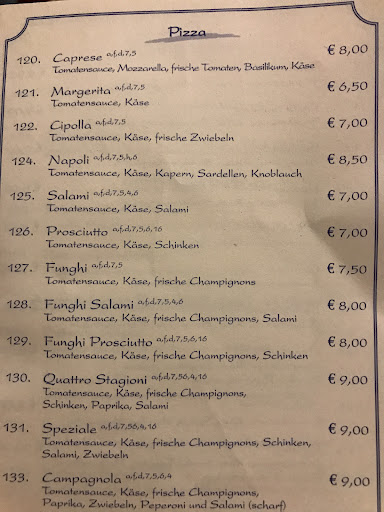 Pizza
120. Caprese a,f,d,7,5 € 8,00
Tomatensauce, Mozzarella, frische Tomaten, Basilikum, Käse
121. Margerita a,f,d,7,5 € 6,50
Tomatensauce, Käse
122. Cipolla a,f,d,7,5 € 7,00
Tomatensauce, Käse, frische Zwiebeln
124. Napoli a,f,d,7,5,h,6 € 8,50
Tomatensauce, Käse, Kapern, Sardellen, Knoblauch
125. Salami a,f,d,7,5,4,6 € 7,00
Tomatensauce, Käse, Salami
126. Prosciutto a,f,d,7,5,6,16 € 7,00
Tomatensauce, Käse, Schinken
127. Funghi a,f,d,7,5 € 7,50
Tomatensauce, Käse, frische Champignons
128. Funghi Salami a,f,d,7,5,4,6 € 8,00
Tomatensauce, Käse, frische Champignons, Salami
129. Funghi Prosciutto a,f,d,7,5,6,16 € 8,00
Tomatensauce, Käse, frische Champignons, Schinken
130. Quattro Stagioni a,f,d,7,56,4,16 € 9,00
Tomatensauce, Käse, frische Champignons,
Schinken, Paprika, Salami
131. Speziale a,f,d,7,56,4,16 € 9,00
Tomatensauce, Käse, frische Champignons, Schinken,
Salami, Zwiebeln
133. Campagnola a,f,d,7,5,6,4 € 9,00
Tomatensauce, Käse, frische Champignons,
Paprika, Zwiebeln, Peperoni und Salami (scharf)